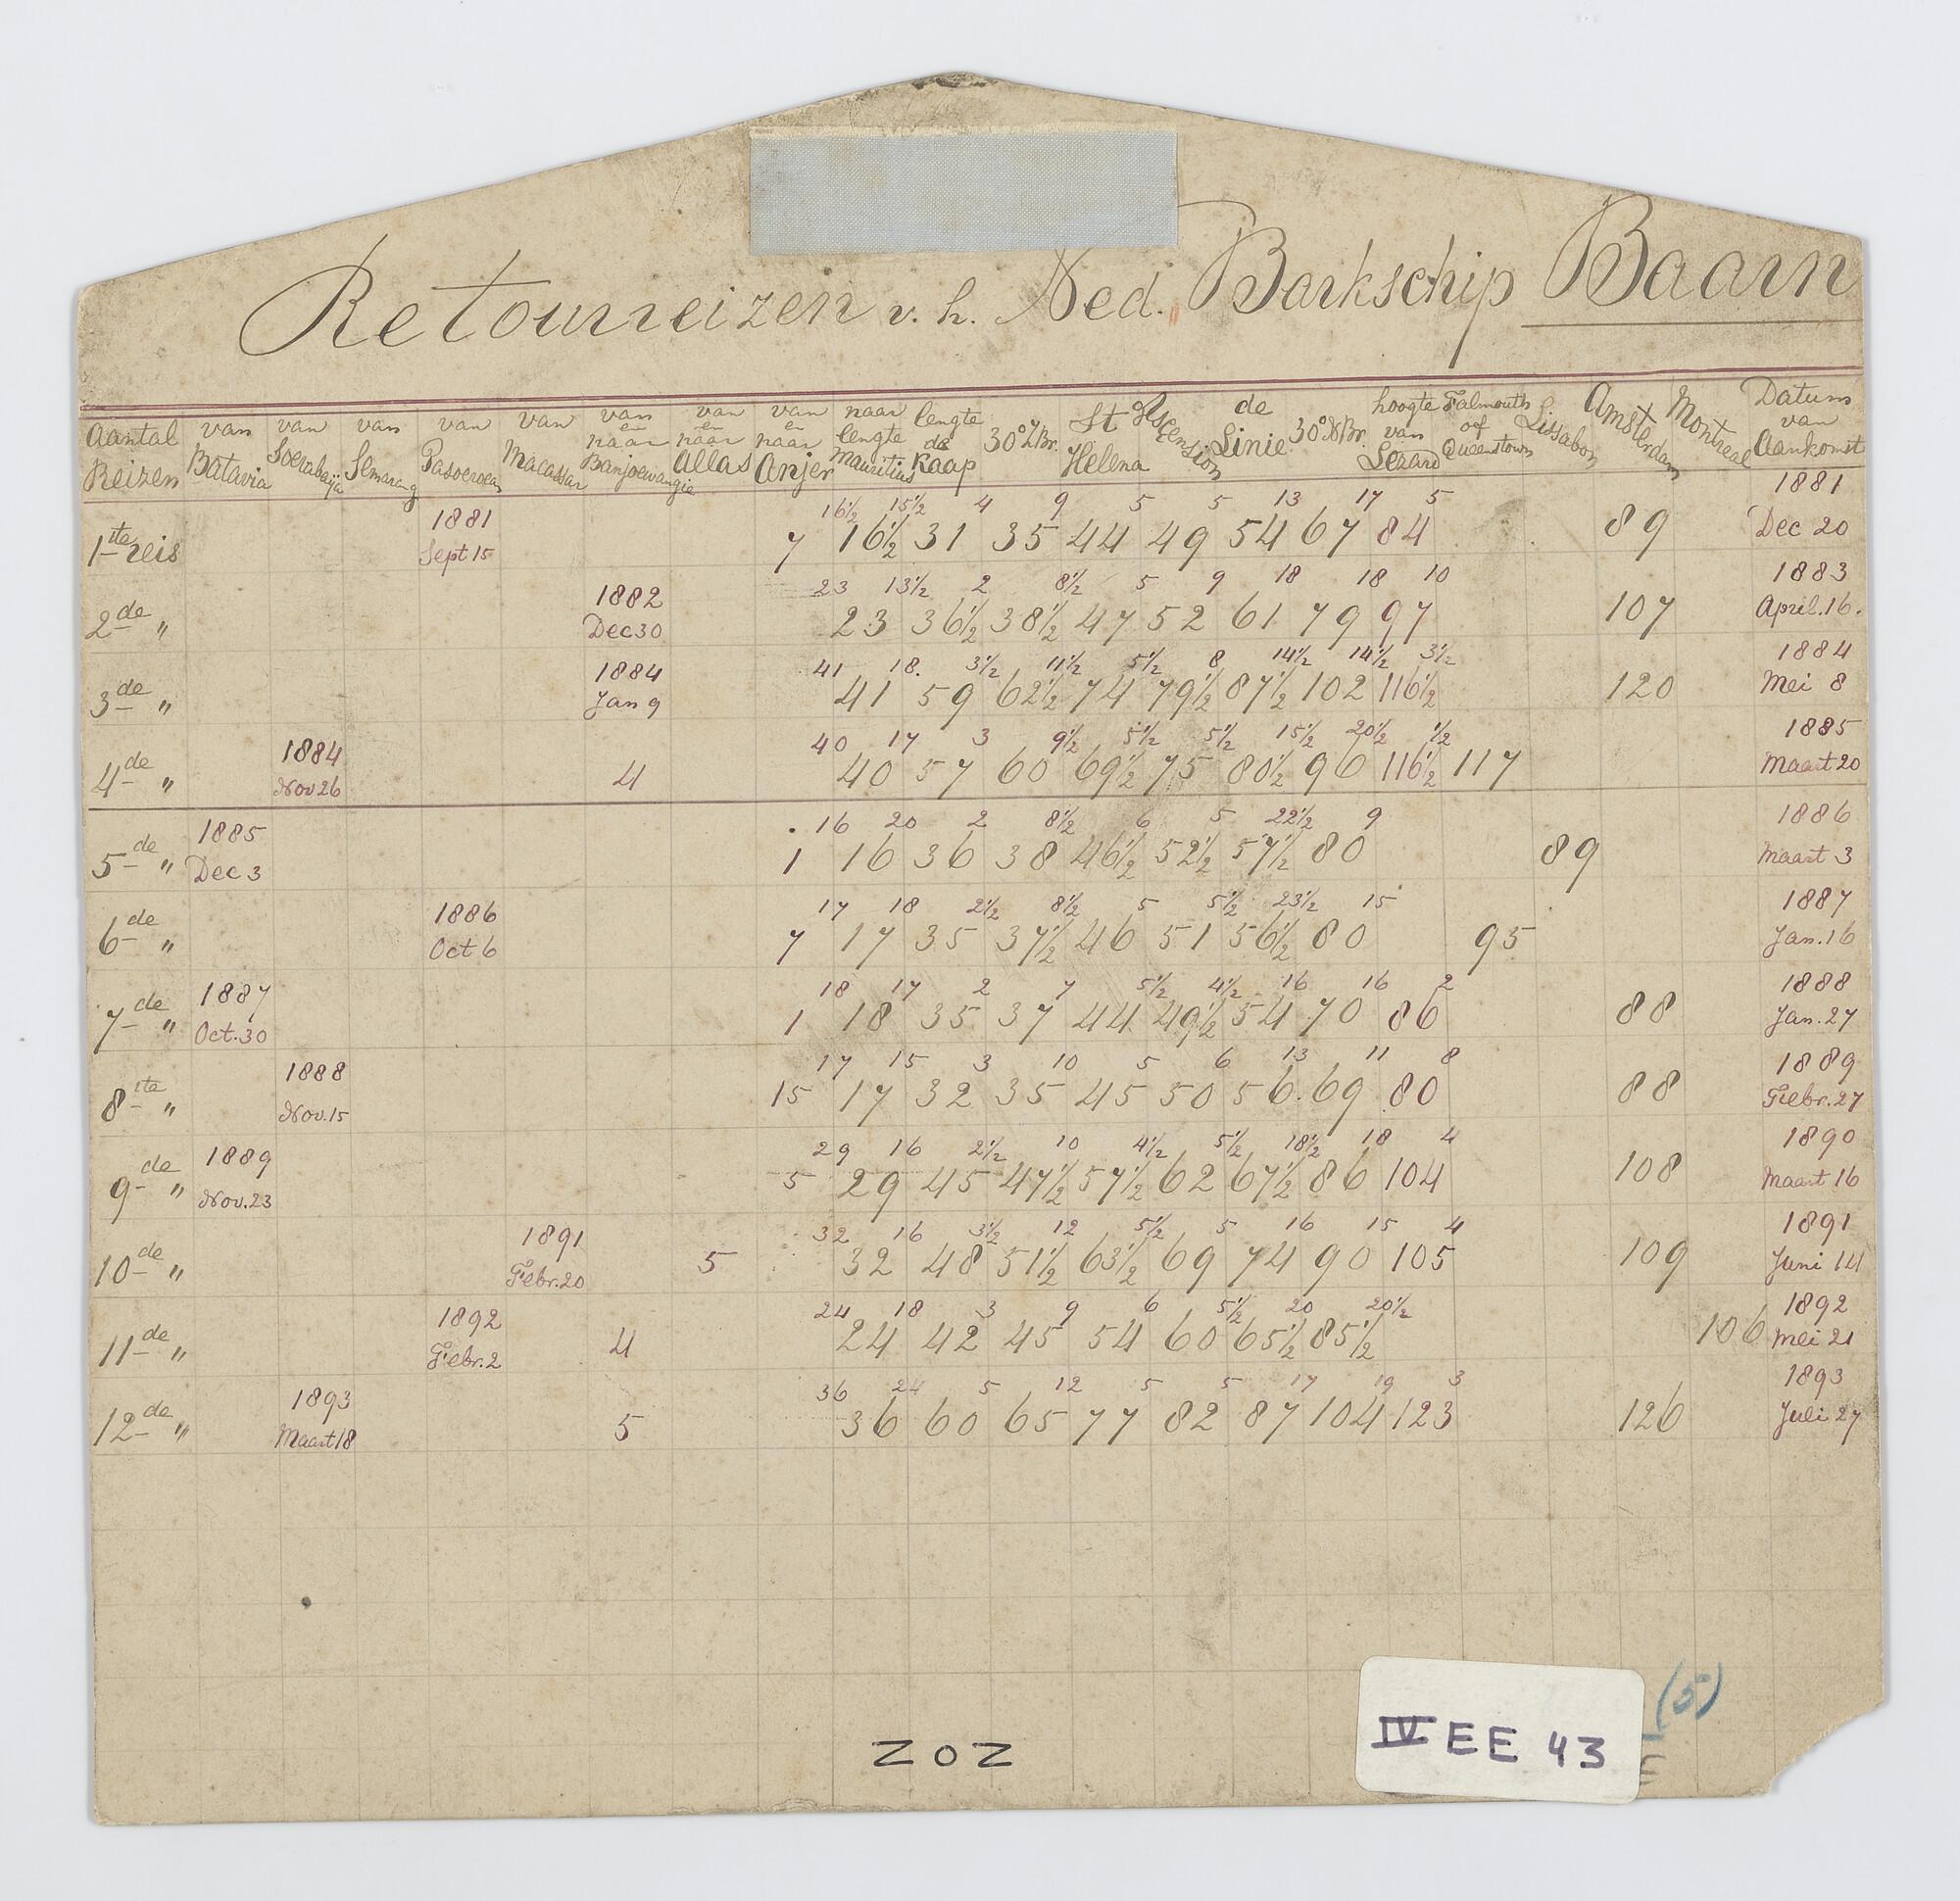 Retourreizen v. h. Ned. Barkschip Baarn
Aantal Reizen | van Batavia | van Soerabaija | van Semarang | van Pasoeroean | van Macassar | van en naar Banjoewangie | van en naar Allas | van en naar Anjer | naar lengte Mauritius | lengte de Kaap | 30° Z Br. | St Helena | Ascension | de Linie | 30° N Br. | hoogte van Lezard | Falmouth of Queenstown | Lissabon | Amsterdam | Montreal | Datum van Aankomst
16½ 15½ 4 9 5 5 13 17 5
1ste reis 1881 Sept 15 7 16½ 31 35 44 49 54 67 84 89 1881 Dec 20
23 13½ 2 8½ 5 9 18 18 10
2de " 1882 Dec 30 23 36½ 38½ 47 52 61 79 97 107 1883 April.16.
41 18. 3½ 11½ 5½ 8 14½ 14½ 3½
3de " 1884 Jan 9 41 59 62½ 74 79½ 87½ 102 116½ 120 1884 Mei 8
40 17 3 9½ 5½ 5½ 15½ 20½ ½
4de " 1884 Nov 26 4 40 57 60 69½ 75 80½ 96 116½ 117 1885 Maart 20
16 20 2 8½ 6 5 22½ 9
5de " 1885 Dec 3 1 16 36 38 46½ 52½ 57½ 80 89 1886 Maart 3
17 18 2½ 8½ 5 5½ 23½ 15
6de " 1886 Oct 6 7 17 35 37½ 46 51 56½ 80 95 1887 Jan.16
18 17 2 7 5½ 4½ 16 16 2
7de " 1887 Oct.30 1 18 35 37 44 49½ 54 70 86 88 1888 Jan.27
17 15 3 10 5 6 13 11 8
8ste " 1888 Nov.15 15 17 32 35 45 50 56 69 80 88 1889 Febr.27
29 16 2½ 10 4½ 5½ 18½ 18 4
9de " 1889 Nov.23 5 29 45 47½ 57½ 62 67½ 86 104 108 1890 Maart 16
32 16 3½ 12 5½ 5 16 15 4
10de " 1891 Febr.20 5 32 48 51½ 63½ 69 74 90 105 109 1891 Juni 14
24 18 3 9 6 5½ 20 20½
11de " 1892 Febr.2 4 24 42 45 54 60 65½ 85½ 106 1892 Mei 21
36 24 5 12 5 5 17 19 3
12de " 1893 Maart 18 5 36 60 65 77 82 87 104 123 126 1893 Juli 27
(5)
ZOZ
IV EE 43